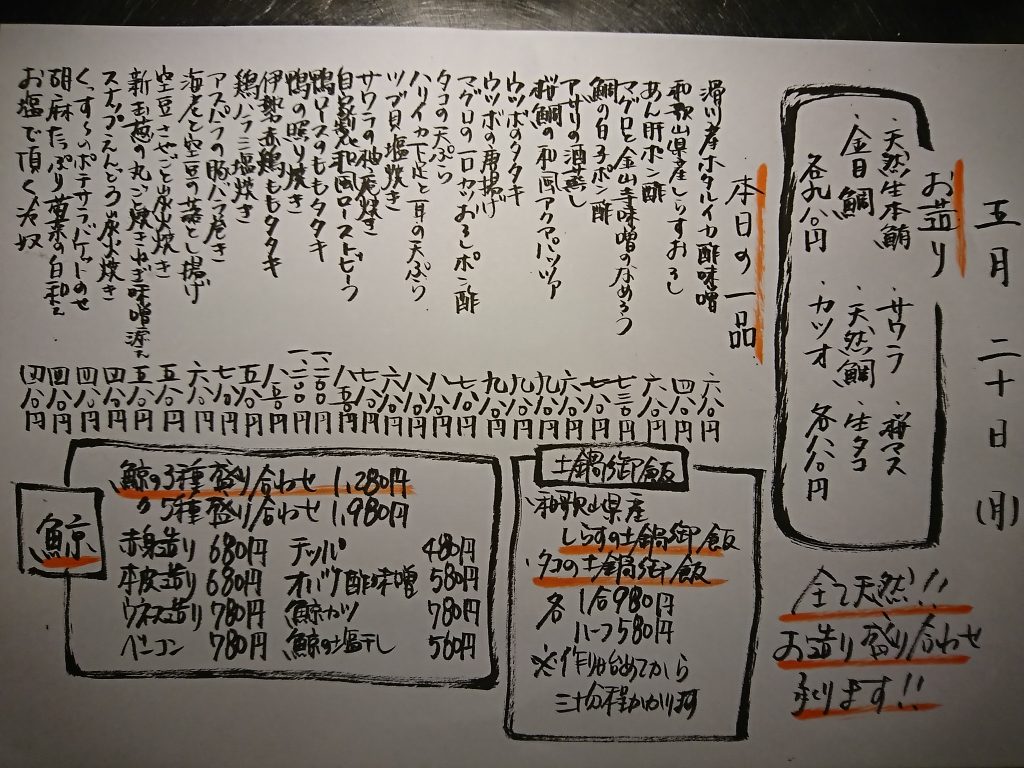 五月 二十日 (月)
お造り
・天然生本鮪 ・サワラ ・桜マス
・金目鯛 ・天然鯛 ・生タコ
各九八〇円 ・カツオ 各八八〇円
全て天然!!
お造り盛り合わせ
承ります!!
本日の一品
滑川産ホタルイカ酢味噌 六八〇円
和歌山県産しらすおろし 四八〇円
あん肝ポン酢 六八〇円
マグロと金山寺味噌のなめろう 七三〇円
鯛の白子ポン酢 七八〇円
アサリの酒蒸し 六八〇円
桜鯛の和風アクアパッツァ 九八〇円
ウツボのタタキ 九八〇円
ウツボの唐揚げ 九八〇円
マグロの一口カツおろしポン酢 七八〇円
タコの天ぷら 八八〇円
ハリイカ下足と耳の天ぷら 八八〇円
ツブ貝塩焼き 六八〇円
サワラの柚庵焼き 七八〇円
自家製和風ローストビーフ 八五〇円
鴨ロースのももタタキ 一、二〇〇円
鴨の照り焼き 一、二〇〇円
伊勢赤鶏ももタタキ 八五〇円
鶏ハラミ塩焼き 五八〇円
アスパラの豚バラ巻き 七八〇円
海老と空豆の葛とじ揚げ 六八〇円
空豆さやごと炭火焼き 五八〇円
新玉葱の丸ごと焼きねぎ味噌添え 五八〇円
スナップえんどう炭火焼き 四八〇円
ポテサラバゲットのせ 四八〇円
胡麻たっぷり 白和え 四八〇円
お塩で頂く冷奴 四八〇円
土鍋御飯
・和歌山県産
しらすの土鍋御飯
・タコの土鍋御飯
各 1合980円
ハーフ580円
※作り始めてから
三十分程かかります
鯨
鯨の3種盛り合わせ 1,280円
〃 5種盛り合わせ 1,980円
赤身造り 680円 テッパ 480円
本皮造り 680円 オバケ酢味噌 580円
ウネス造り 780円 鯨カツ 780円
ベーコン 780円 鯨の塩干し 560円